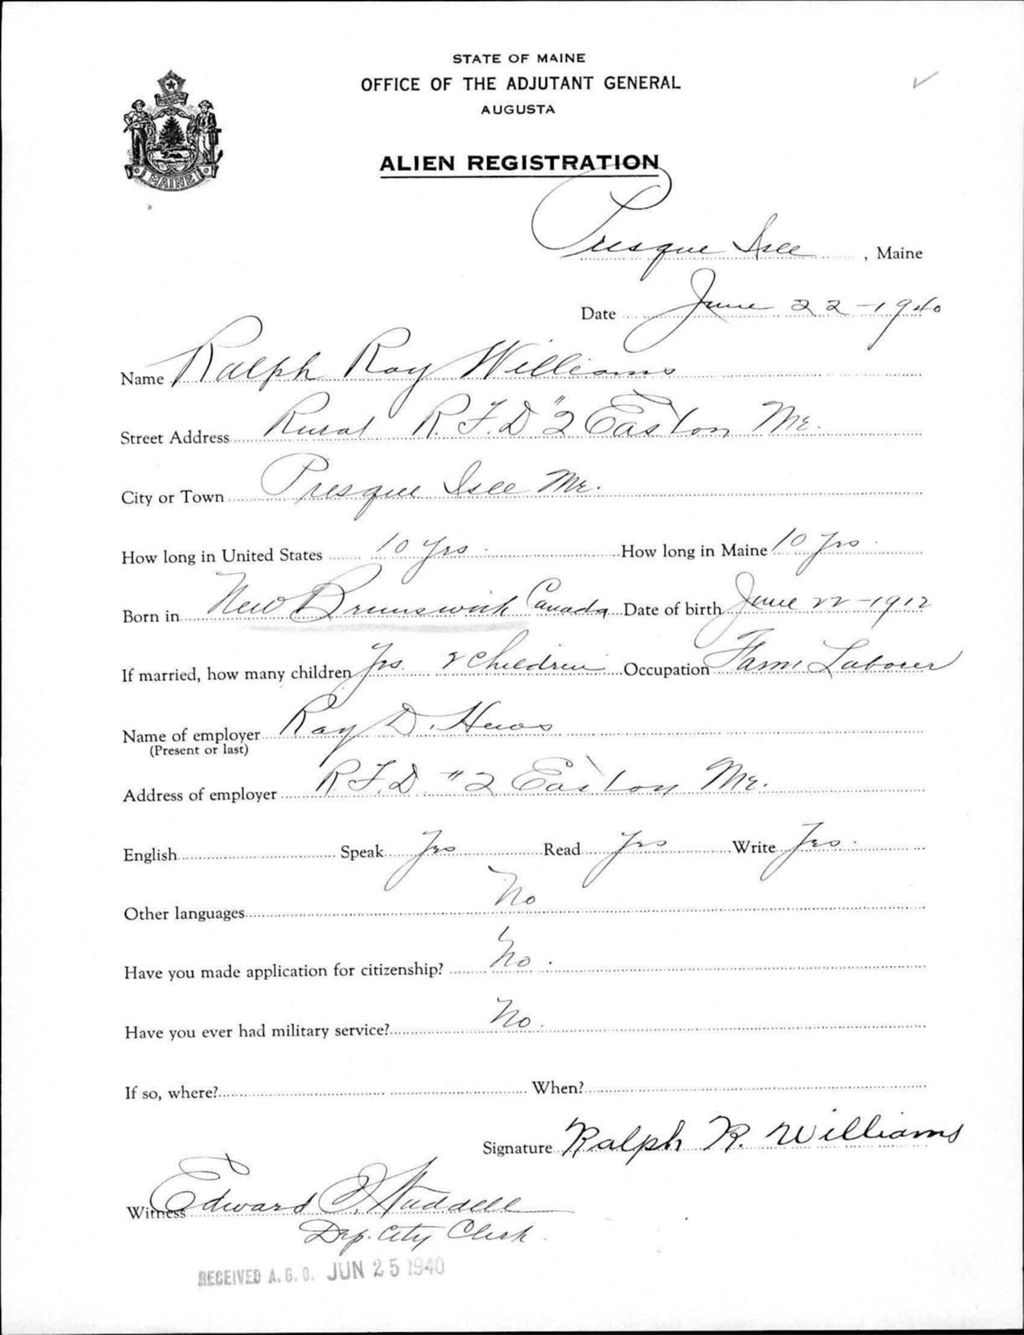 STATE OF MAINE
OFFICE OF THE ADJUTANT GENERAL
AUGUSTA
MAINE
ALIEN REGISTRATION
Presque Isle, Maine
Date June 22-1940
Name Ralph Ray Williams
Street Address Rural R.F.D "2 Easton Me.
City or Town Presque Isle Me.
How long in United States 10 yrs. How long in Maine 10 yrs.
Born in New Brunswick Canada Date of birth June 22-1912
If married, how many children Yes. 2 Children Occupation Farm Laborer
Name of employer Ray D.
(Present or last)
Address of employer R.F.D. "2 Easton Me.
English Speak Yes Read Yes Write Yes.
Other languages No
Have you made application for citizenship? No.
Have you ever had military service? No.
If so, where? When?
Signature Ralph R. Williams
Witness Edward
Dep. City Clerk
RECEIVED A. G. O. JUN 25 1940